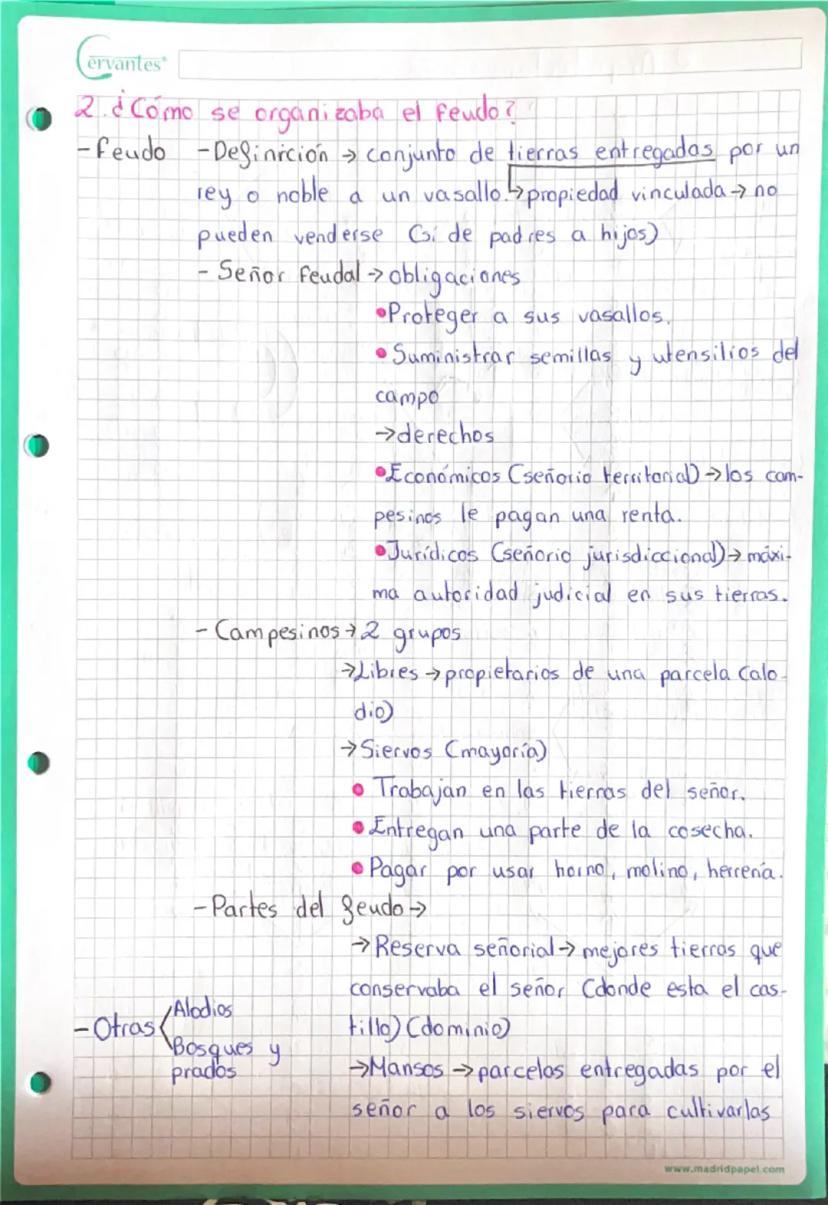 Cervantes®
2. ¿Cómo se organizaba el feudo?
-feudo -Definición → conjunto de tierras entregadas por un
rey o noble a un vasallo. ↳propiedad vinculada → no
pueden venderse (sí de padres a hijos)
- Señor feudal → obligaciones
•Proteger a sus vasallos.
• Suministrar semillas y utensilios del
campo
→derechos
•Económicos (señorio territorial) → los cam-
pesinos le pagan una renta.
•Jurídicos (señorio jurisdiccional) → máxi-
ma autoridad judicial en sus tierras.
- Campesinos → 2 grupos
→Libres → propietarios de una parcela (alo-
dio)
→Siervos (mayoría)
• Trabajan en las tierras del señor.
• Entregan una parte de la cosecha.
• Pagar por usar horno, molino, herrería.
-Partes del feudo →
→Reserva señorial → mejores tierras que
conservaba el señor (donde esta el cas-
tillo) (dominio)
→Mansos → parcelas entregadas por el
señor a los siervos para cultivarlas
-Otras
Alodios
Bosques y
prados
www.madridpapel.com